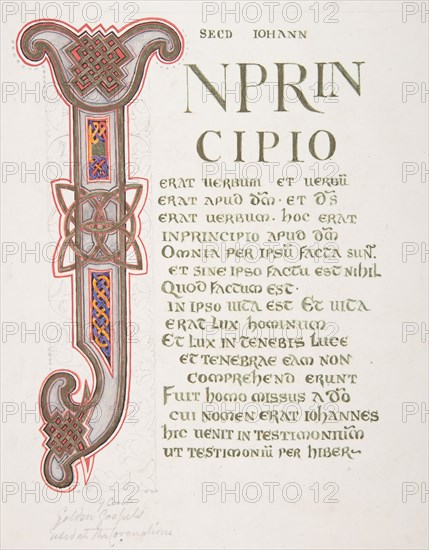 SECD IOHANN
INPRIN
CIPIO
ERAT UERBUM · ET UERBŪ
ERAT APUD DM̄ · ET DS̄
ERAT UERBUM · HOC ERAT
INPRINCIPIO APUD DM̄
OMNIA PER IPSŪ FACTA SUN̄.
ET SINE IPSO FACTŪ EST NIHIL
QUOD FACTUM EST ·
IN IPSO UITA EST ET UITA
ERAT LUX HOMINUM
ET LUX IN TENEBIS LUCE
ET TENEBRAE EAM NON
COMPREHEND ERUNT
FUIT HOMO MISSUS A DŌ
CUI NOMEN ERAT IOHANNES
HIC UENIT IN TESTIMONIUM̄
UT TESTIMONIŪ PER HIBER
Golden Gospels
used at the Coronations
PHOTO12